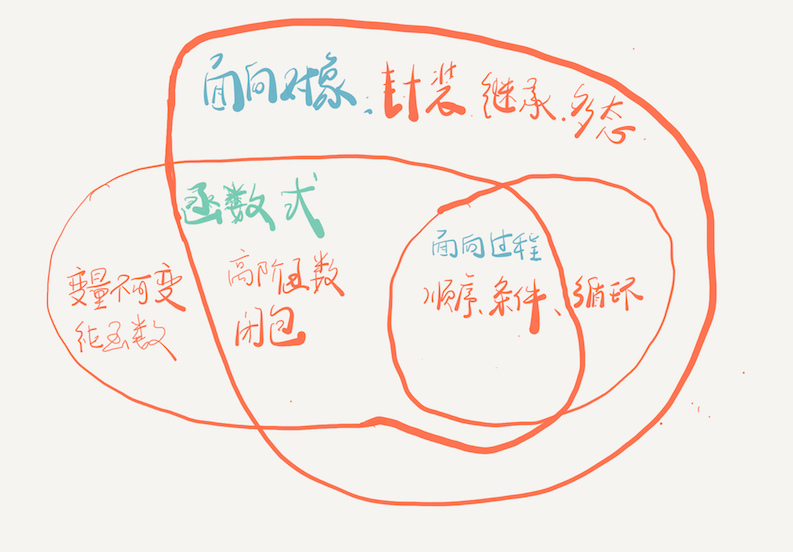 面向对象、封装、继承、多态
函数式
变量不可变
纯函数
高阶函数
闭包
面向过程
顺序、条件、循环